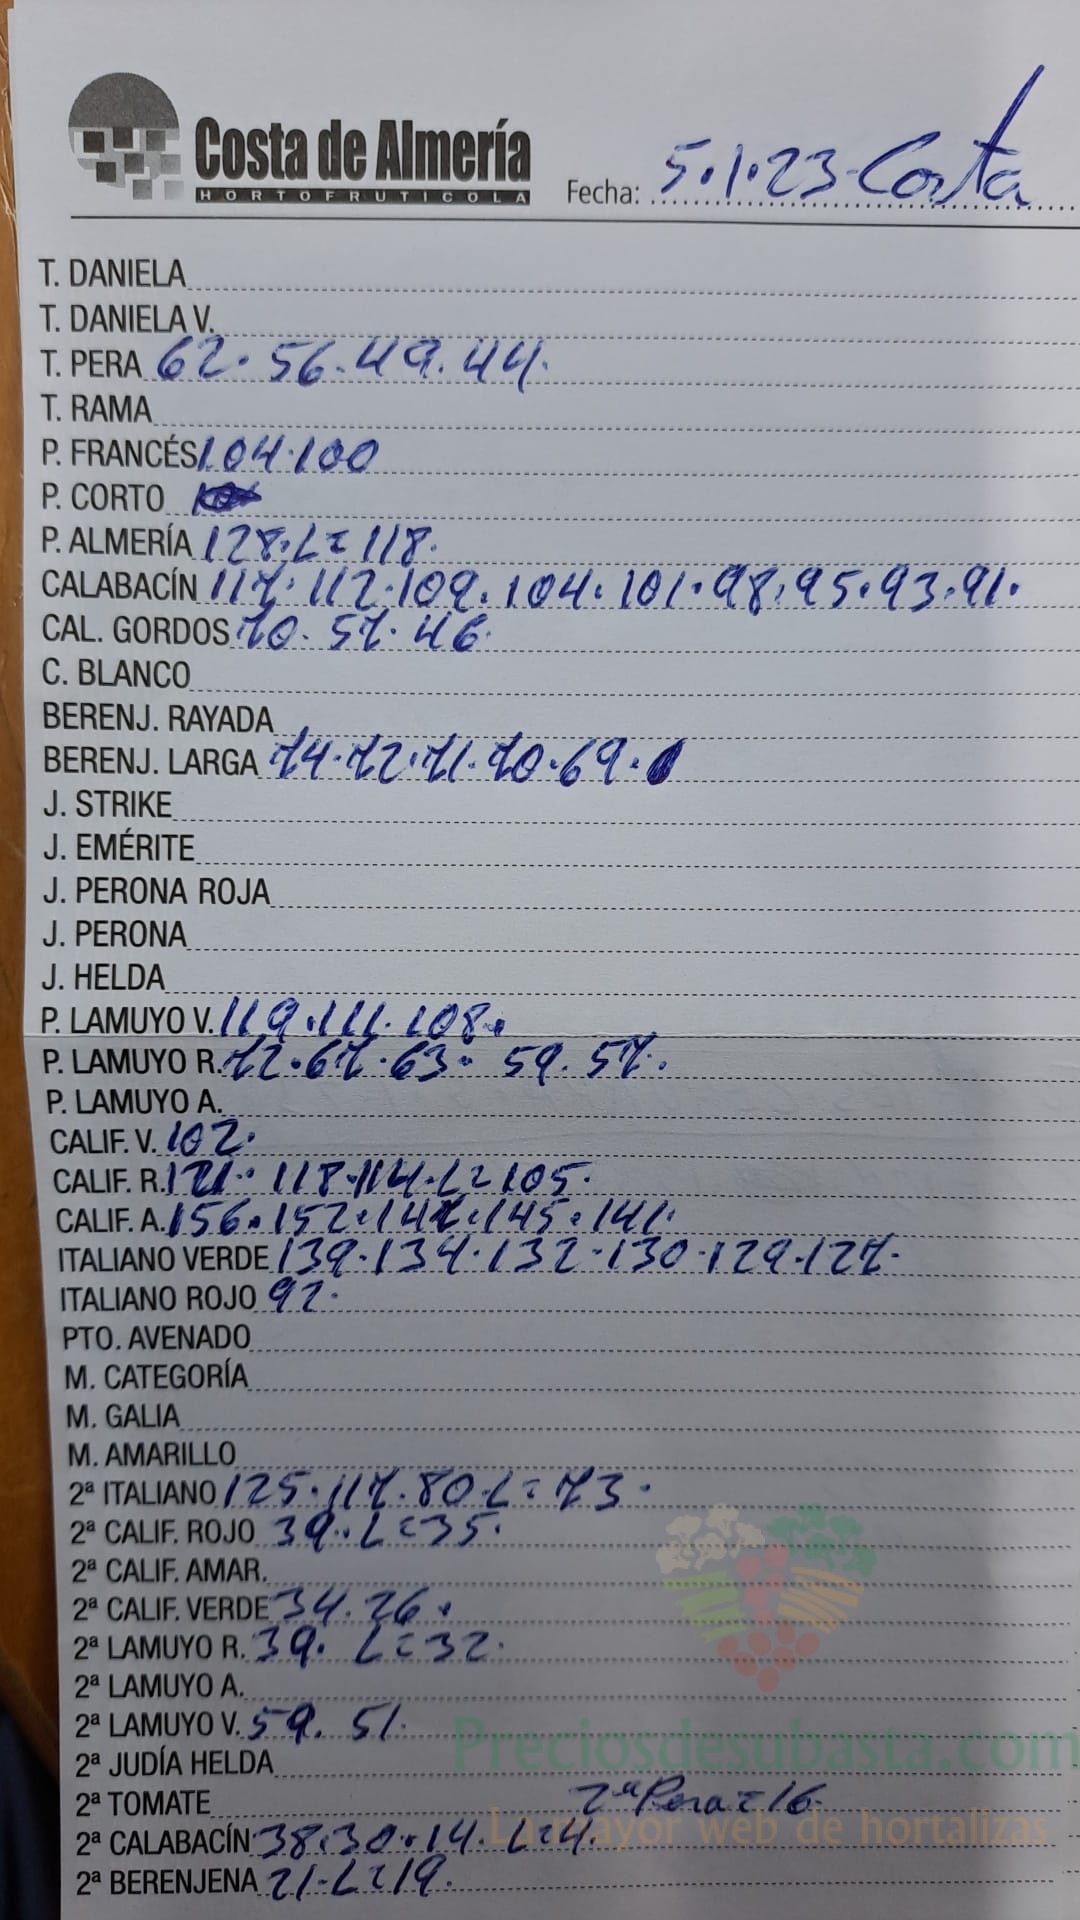 Costa de Almería
HORTOFRUTICOLA
Fecha: 5.1.23-Costa
T. DANIELA
T. DANIELA V.
T. PERA 62. 56. 49. 44.
T. RAMA
P. FRANCÉS 104.100
P. CORTO
P. ALMERÍA 128. L=118.
CALABACÍN 117. 112. 109. 104. 101. 98. 95. 93. 91.
CAL. GORDOS 70. 57. 46.
C. BLANCO
BERENJ. RAYADA
BERENJ. LARGA 74. 72. 71. 70. 69.
J. STRIKE
J. EMÉRITE
J. PERONA ROJA
J. PERONA
J. HELDA
P. LAMUYO V. 119. 111. 108.
P. LAMUYO R. 72. 67. 63. 59. 57.
P. LAMUYO A.
CALIF. V. 102.
CALIF. R. 121. 118. 114. L=105.
CALIF. A. 156. 152. 147. 145. 141.
ITALIANO VERDE 139. 134. 132. 130. 129. 127.
ITALIANO ROJO 92.
PTO. AVENADO
M. CATEGORÍA
M. GALIA
M. AMARILLO
2ª ITALIANO 125. 117. 80. L=73.
2ª CALIF. ROJO 39. L=35.
2ª CALIF. AMAR.
2ª CALIF. VERDE 34. 26.
2ª LAMUYO R. 39. L=32.
2ª LAMUYO A.
2ª LAMUYO V. 59. 51.
Preciosdesubasta.com
2ª JUDÍA HELDA
2ª TOMATE 2ª Pera=16
La mayor web de hortalizas
2ª CALABACÍN 38. 30. 14. L=4.
2ª BERENJENA 21. L=19.